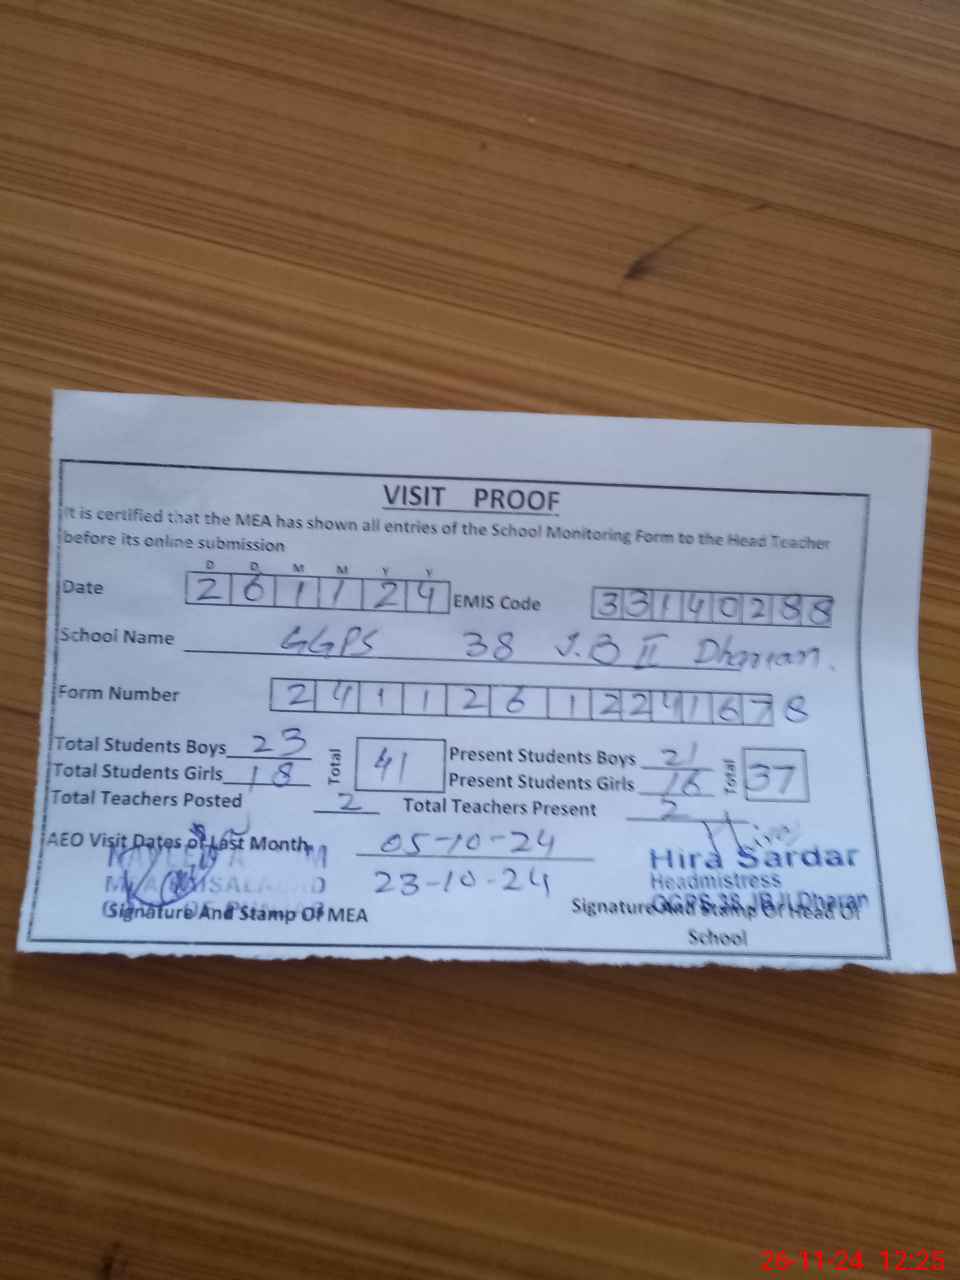 VISIT PROOF
It is certified that the MEA has shown all entries of the School Monitoring Form to the Head Teacher
before its online submission
D D M M Y Y
Date 2 6 1 1 2 4 EMIS Code 3 3 1 4 0 2 8 8
School Name GGPS 38 J.B II Dharian.
Form Number 2 4 1 1 2 6 1 2 2 4 1 6 7 8
Total Students Boys 23 Total 41 Present Students Boys 21 Total 37
Total Students Girls 18 Present Students Girls 16
Total Teachers Posted 2 Total Teachers Present 2
AEO Visit Dates of Last Month 05-10-24
23-10-24
Hira Sardar
Headmistress
GGPS 38 JB II Dharan
Signature And Stamp Of MEA
Signature And Stamp Of Head Of
School
26-11-24 12:25